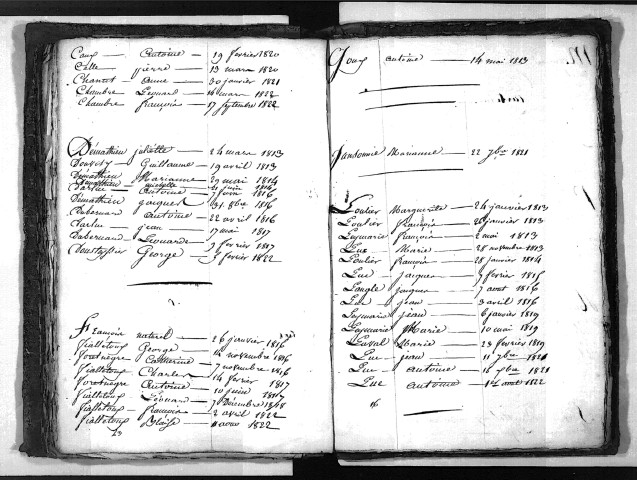 Caux — Antoine — 19 février 1820
Colle — pierre — 13 mars 1820
Chantet — anne — 30 janvier 1821
Chambre — Léonard — 16 mars 1822
Chambre — françois — 17 septembre 1822
Demathieu juliette — 24 mars 1813
Guillaume — 19 avril 1813
Demathieu Marianne — 29 mai 1814
Antoine — 7 juin 1816
Demathieu jacques — 31 8bre 1816
antoine — 22 avril 1816
jean — 17 mai 1817
Léonarde — 3 février 1817
George — 5 février 1822
naturel — 26 janvier 1816
Fialletoux George — 14 novembre 1816
Catherine — 7 novembre 1816
Fialletoux Charles — 14 février
Antoine — 10 juin 1817
Fialletoux Léonard — 7 Décembre 1818
Fialletoux françois — 2 avril 1822
Fialletoux Blaise — aout 1822
23
Joux antoine — 14 mai 1813
Jansonnie Marianne — 22 7bre 1821
Loulier Marguerite — 24 janvier 1813
Loulier françois — 26 janvier 1813
Laymarie françois — 2 mai 1813
Luc — Marie — 28 novembre 1813
Loulier françois — 28 janvier 1814
Luc — jacques — 9 février 1815
Langle jacques — 7 aout 1816
Luc — jean — 3 avril 1816
Laymarie jean — 6 janvier 1819
Laymarie Marie — 10 mai 1819
Laval Marie — 23 février 1819
Luc — jean — 11 7bre 1821
Luc — antoine — 16 7bre 1821
Luc antoine — 1er aout 1822